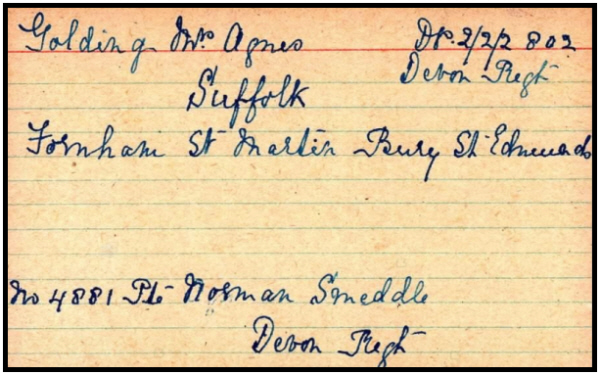 Golding Mrs Agnes Dr. 2/2/2 802
Devon Regt
Suffolk
Fornham St Martin Bury St Edmunds
No 4881 Pte Norman Smeddle
Devon Regt